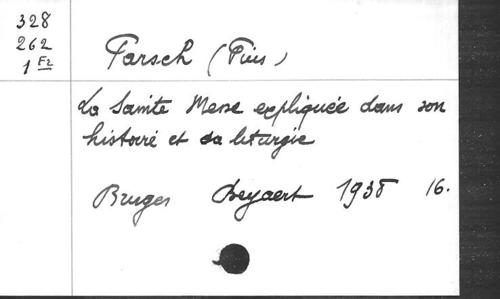 328
262
1 Fz
Parsch (Pius)
La Sainte Messe expliquée dans son
histoire et sa liturgie
Bruges Beyaert 1938 16.